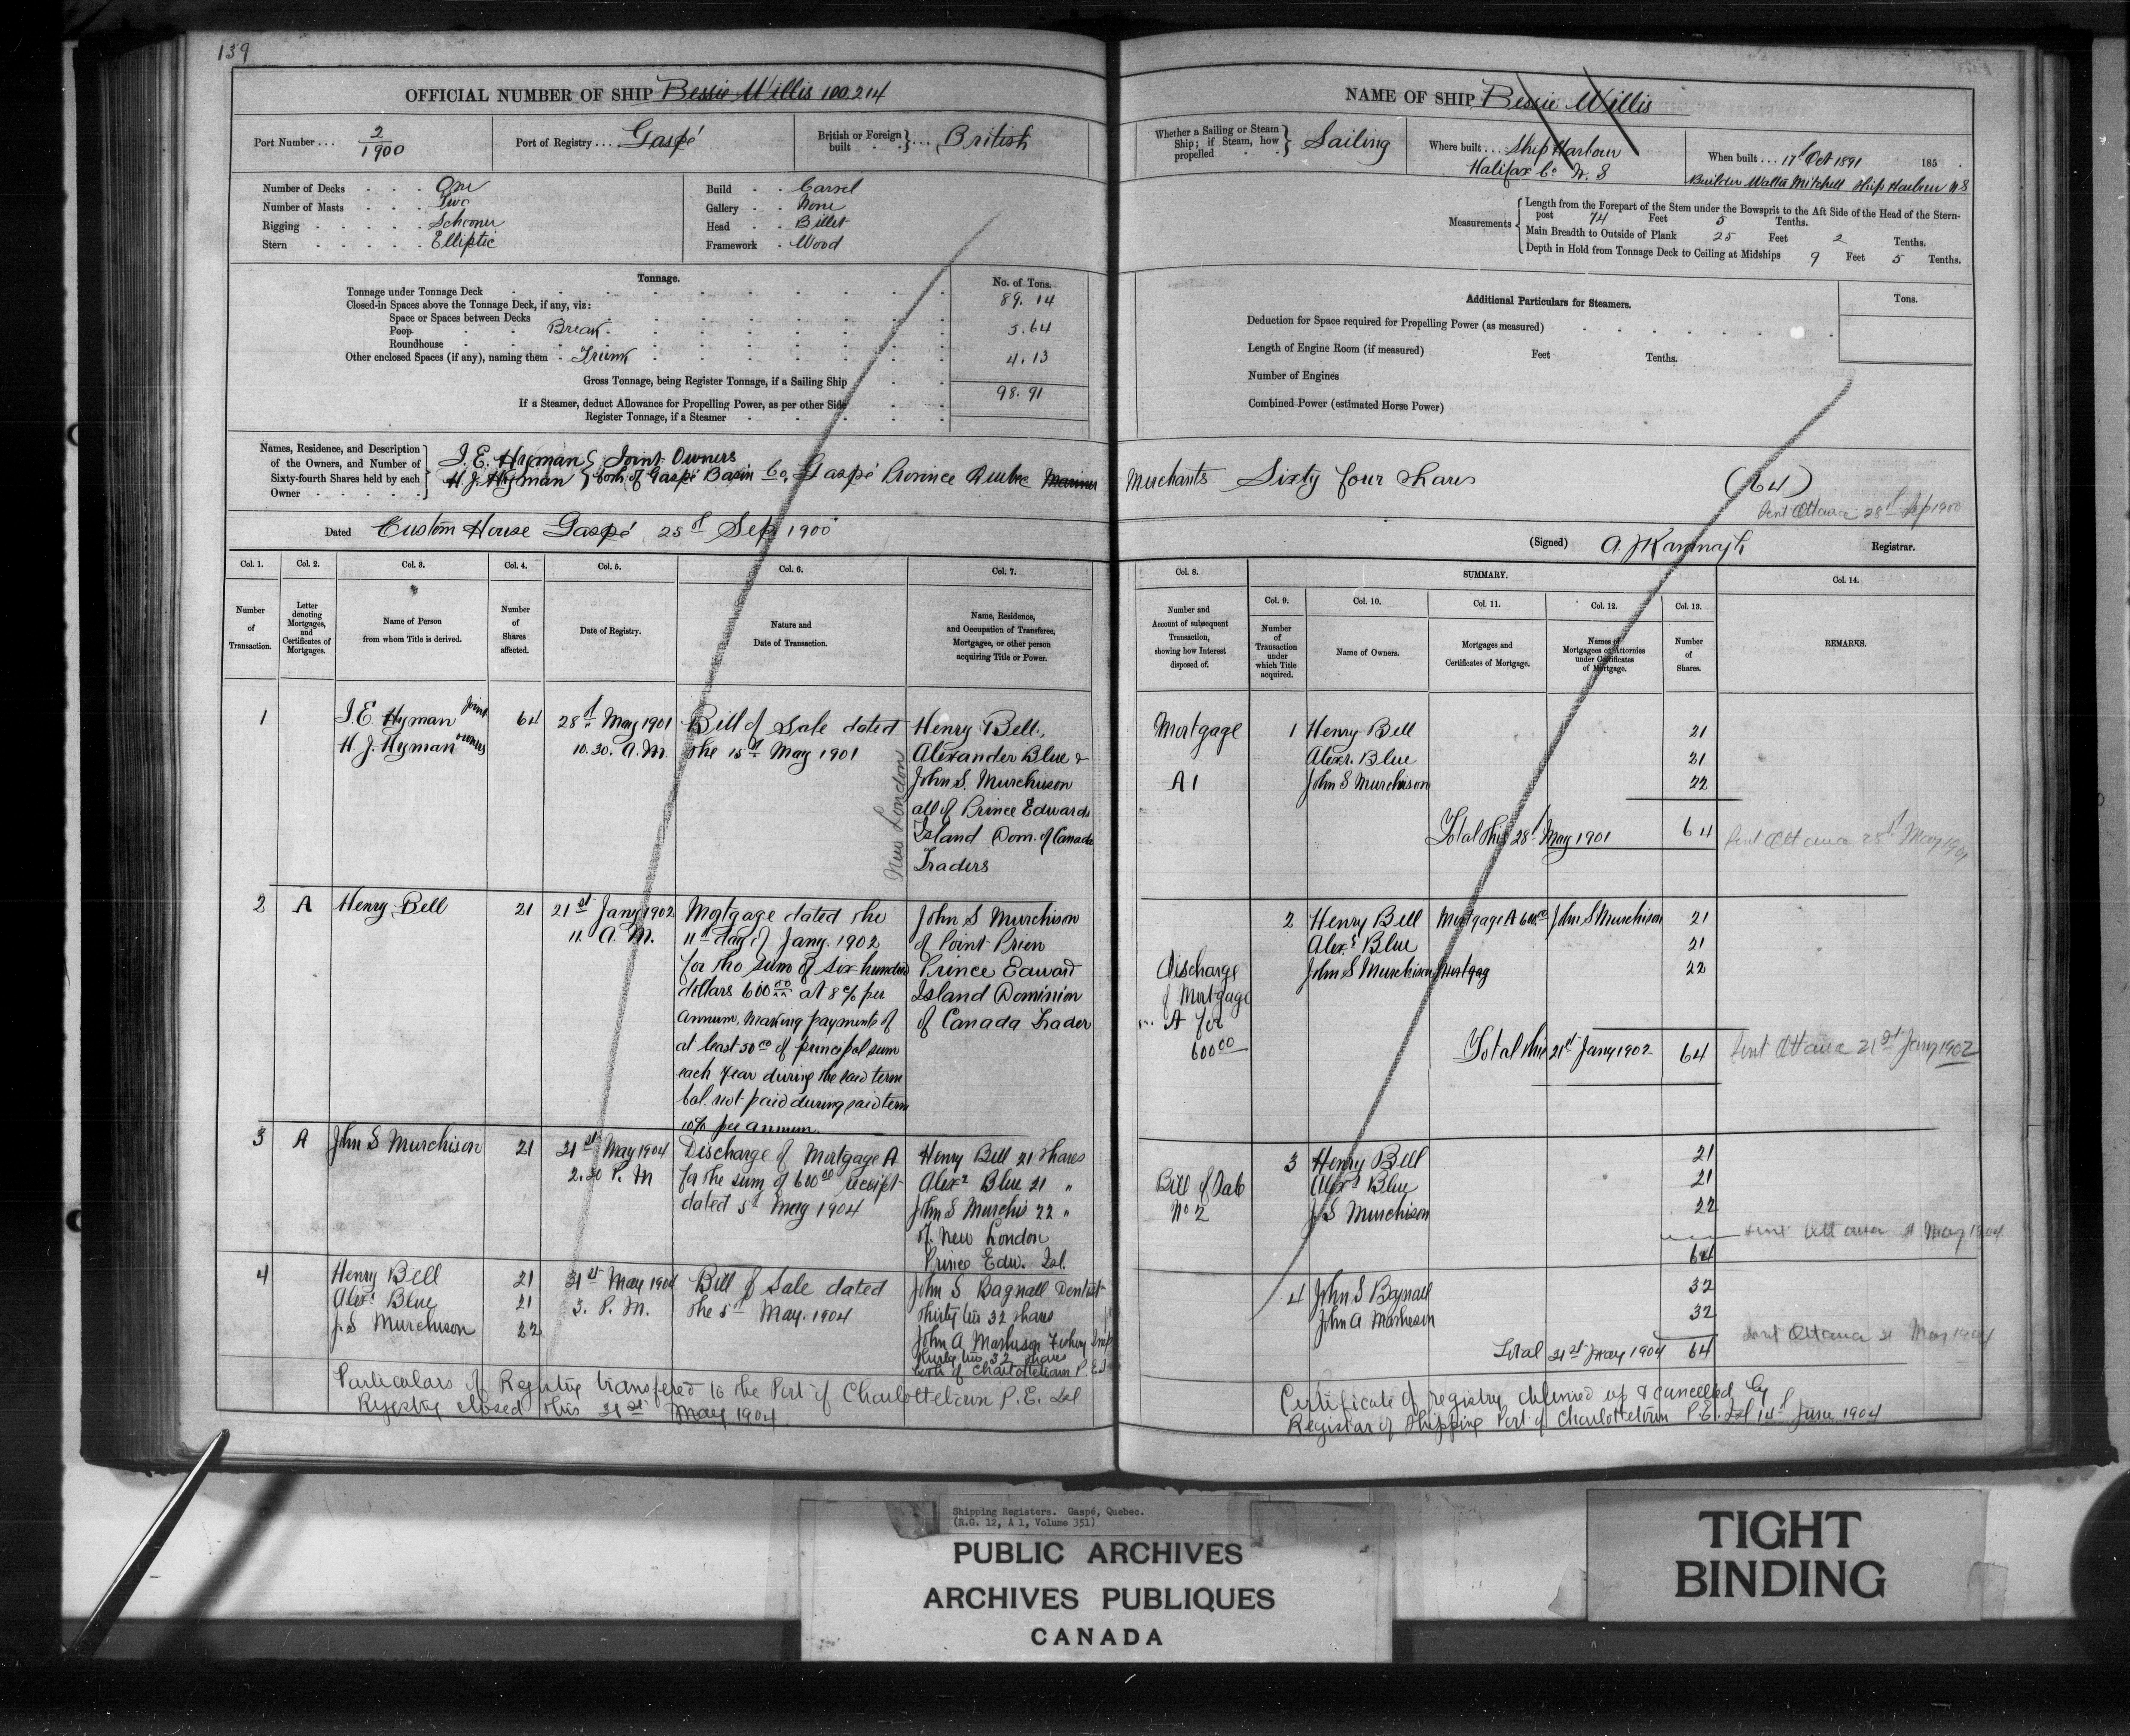 139
OFFICIAL NUMBER OF SHIP Bessie Willis 100.214
Port Number ... 2/1900
Port of Registry ... Gaspé
British or Foreign built } ... British
Number of Decks . . . One
Number of Masts . . . Two
Rigging . . . . . Schooner
Stern . . . . . Elliptic
Build . . Carvel
Gallery . . None
Head . . Billet
Framework . Wood
Tonnage.
No. of Tons.
Tonnage under Tonnage Deck 89. 14
Closed-in Spaces above the Tonnage Deck, if any, viz:
Space or Spaces between Decks
Poop Break 5.64
Roundhouse
Other enclosed Spaces (if any), naming them . Trunk 4.13
Gross Tonnage, being Register Tonnage, if a Sailing Ship 98.91
If a Steamer, deduct Allowance for Propelling Power, as per other Side
Register Tonnage, if a Steamer
Names, Residence, and Description of the Owners, and Number of Sixty-fourth Shares held by each Owner
J. E. Hyman } Joint Owners
H. J. Hyman } both of Gaspé Basin Co. Gaspé Province Quebec Mariner
Dated Custom House Gaspé 25th Sep 1900
Col. 1. Col. 2. Col. 3. Col. 4. Col. 5. Col. 6. Col. 7.
Number of Transaction.
Letter denoting Mortgages, and Certificates of Mortgages.
Name of Person from whom Title is derived.
Number of Shares affected.
Date of Registry.
Nature and Date of Transaction.
Name, Residence, and Occupation of Transferee, Mortgagee, or other person acquiring Title or Power.
1
J. E Hyman Joint
H. J. Hyman owners
64
28th May 1901
10.30. A.M.
Bill of Sale dated
the 15th May 1901
New London
Henry Bell,
Alexander Blue &
John S. Murchison
all of Prince Edwards
Island Dom. of Canada
Traders
2 A Henry Bell 21
21st Jany 1902
11. A. M.
Mortgage dated the
11th day of Jany. 1902
for the sum of six hundred
dollars 600 00 at 8% per
annum, making payments of
at least 50 00 of principal sum
each year during the said term
bal. not paid during said term
10% per annum.
John S Murchison
of Point Prim
Prince Edward
Island Dominion
of Canada Trader
3 A John S Murchison 21
31st May 1904
2.30 P. M
Discharge of Mortgage A
for the sum of 600 00 receipt
dated 5th May 1904
Henry Bell 21 shares
Alexr Blue 21 "
John S Murchis 22 "
of New London
Prince Edw. Isl.
4
Henry Bell 21
Alexr Blue 21
J. S Murchison 22
31st May 1904
3. P. M.
Bill of Sale dated
the 5th May. 1904
John S Bagnall Dentist
thirty two 32 shares
John A Matheson Fishery Insp
thirty two 32 shares
both of Charlottetown P. E I
Particulars of Registry transfered to the Port of Charlottetown P. E. Isl
Registry closed this 31st May 1904
NAME OF SHIP Bessie Willis
Whether a Sailing or Steam Ship; if Steam, how propelled } Sailing
Where built ... Ship Harbour
Halifax Co. N. S
When built ... 17th Oct 1891 185 .
Builder Walter Mitchell Ship Harbour N S
Measurements
Length from the Forepart of the Stem under the Bowsprit to the Aft Side of the Head of the Stern-
post 74 Feet 5 Tenths.
Main Breadth to Outside of Plank 25 Feet 2 Tenths.
Depth in Hold from Tonnage Deck to Ceiling at Midships 9 Feet 5 Tenths.
Additional Particulars for Steamers.
Tons.
Deduction for Space required for Propelling Power (as measured)
Length of Engine Room (if measured) Feet Tenths.
Number of Engines
Combined Power (estimated Horse Power)
Merchants Sixty four shares (64)
Sent Ottawa 28th Sep 1900
(Signed) A. J Kavanagh Registrar.
Col. 8. SUMMARY. Col. 14.
Col. 9. Col. 10. Col. 11. Col. 12. Col. 13.
Number and Account of subsequent Transaction, showing how Interest disposed of.
Number of Transaction under which Title acquired.
Name of Owners.
Mortgages and Certificates of Mortgage.
Names of Mortgagees or Attornies under Certificates of Mortgage.
Number of Shares.
REMARKS.
Mortgage
A 1
1 Henry Bell 21
Alexr. Blue 21
John S Murchison 22
Total this 28th May 1901 64 Sent Ottawa 28th May 1901
2 Henry Bell Mortgage A 600.00 John S Murchison 21
Alexr Blue 21
John S Murchison Mortgag 22
Discharge
of Mortgage
A for
600 00
Total this 21st Jany 1902 64 Sent Ottawa 21st Jany 1902
3 Henry Bell 21
Alexr Blue 21
J. S Murchison 22
Bill of Sale
No 2
64
Sent Ottawa 31 May 1904
4 John S Bagnall 32
John A Matheson 32
Total 31st May 1904 64
Sent Ottawa 31 May 1904
Certificate of registry delivered up & cancelled by
Registrar of Shipping Port of Charlottetown P. E. Isl 14th June 1904
Shipping Registers. Gaspé, Quebec.
(R.G. 12, A 1, Volume 351)
PUBLIC ARCHIVES
ARCHIVES PUBLIQUES
CANADA
TIGHT
BINDING